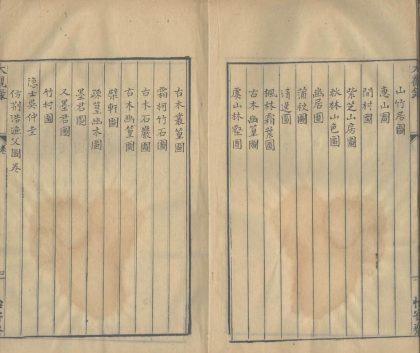 山竹居圖
惠山圖
閒村圖
紫芝山房圖
秋林山色圖
幽居圖
蒲紋圖
清逕圖
楓林霜葉圖
古木幽篁圖
虞山林壑圖
古木叢篁圖
霜柯竹石圖
古木石巖圖
古木幽篁圖
檗軒圖
疎篁幽木圖
墨君圖
又墨君圖
竹村圖
隱士吳仲圭
仿荆浩漁父圖卷
大觀錄